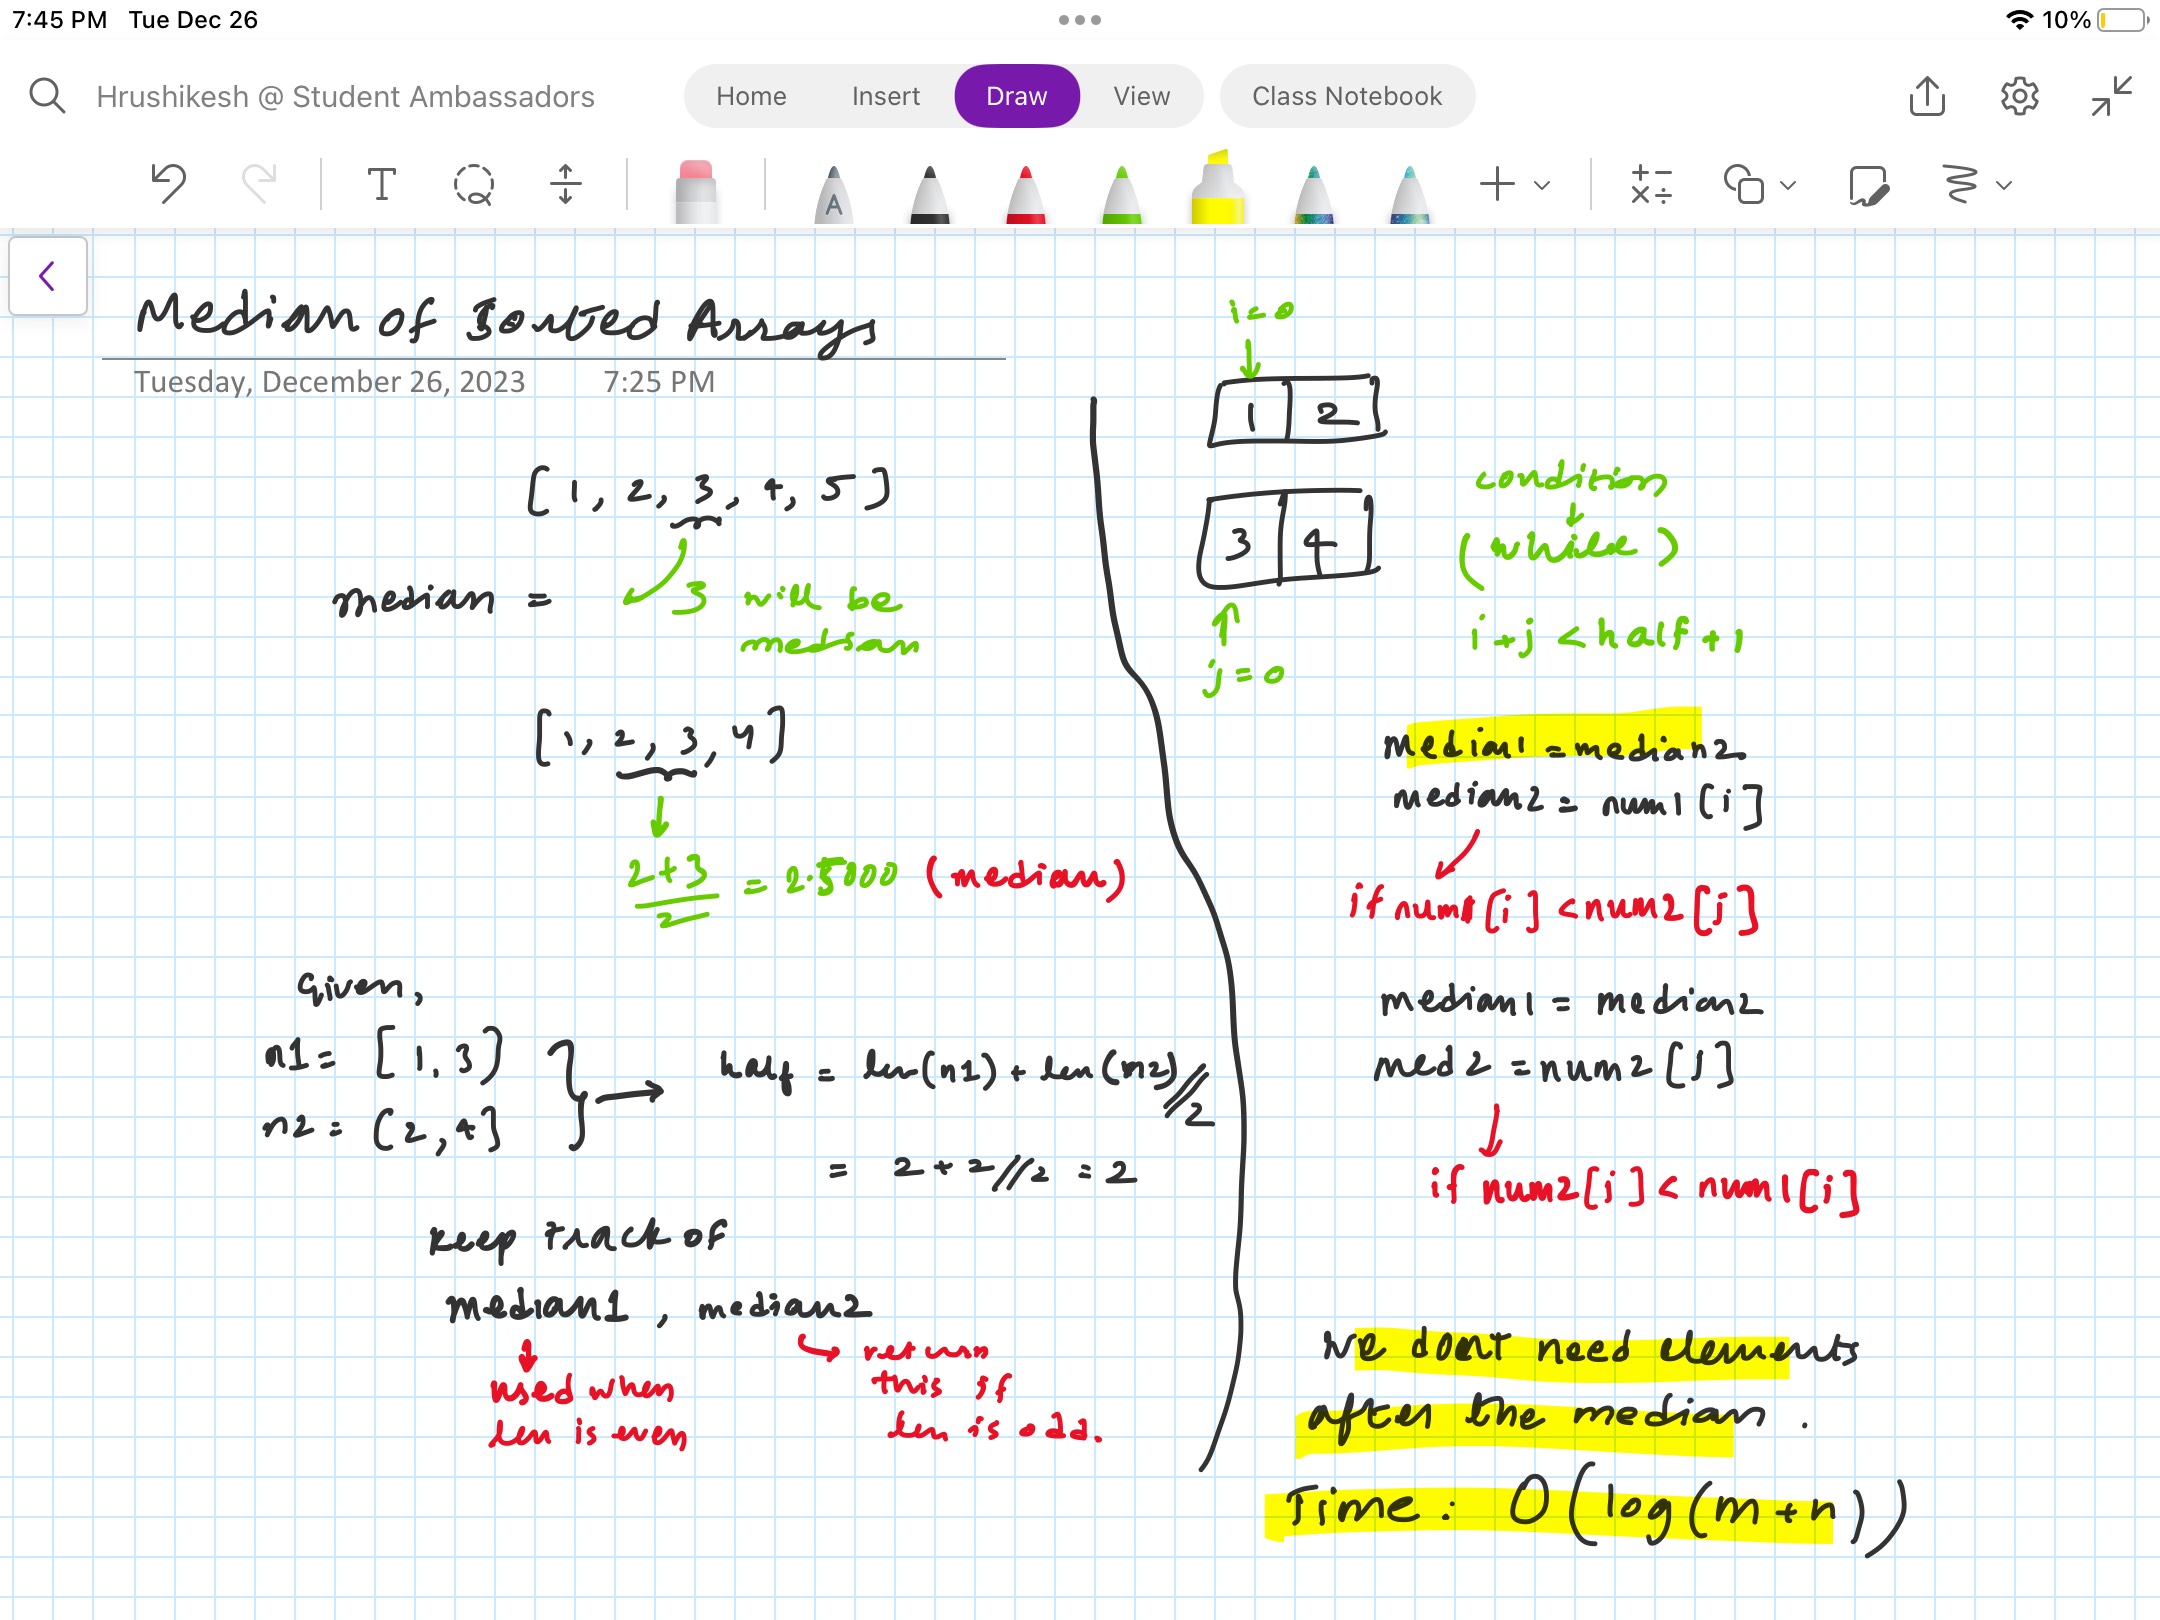 7:45 PM Tue Dec 26
10%
Hrushikesh @ Student Ambassadors
Home Insert Draw View Class Notebook
Median of Sorted Arrays
Tuesday, December 26, 2023 7:25 PM
[1, 2, 3, 4, 5]
median = 3 will be
median
[1, 2, 3, 4]
2+3
2
= 2.5000 (median)
Given,
n1 = [1, 3]
n2 = [2, 4]
half = len(n1) + len(n2)//2
= 2 + 2//2 = 2
keep track of
median1, median2
used when
len is even
return
this if
len is odd.
i=0
1 2
3 4
j=0
condition
(while)
i+j < half+1
median1 = median2
median2 = num1[i]
if num1[i] < num2[j]
median1 = median2
med2 = num2[J]
if num2[i] < num1[i]
We dont need elements
after the median.
Time: O(log(m+n))